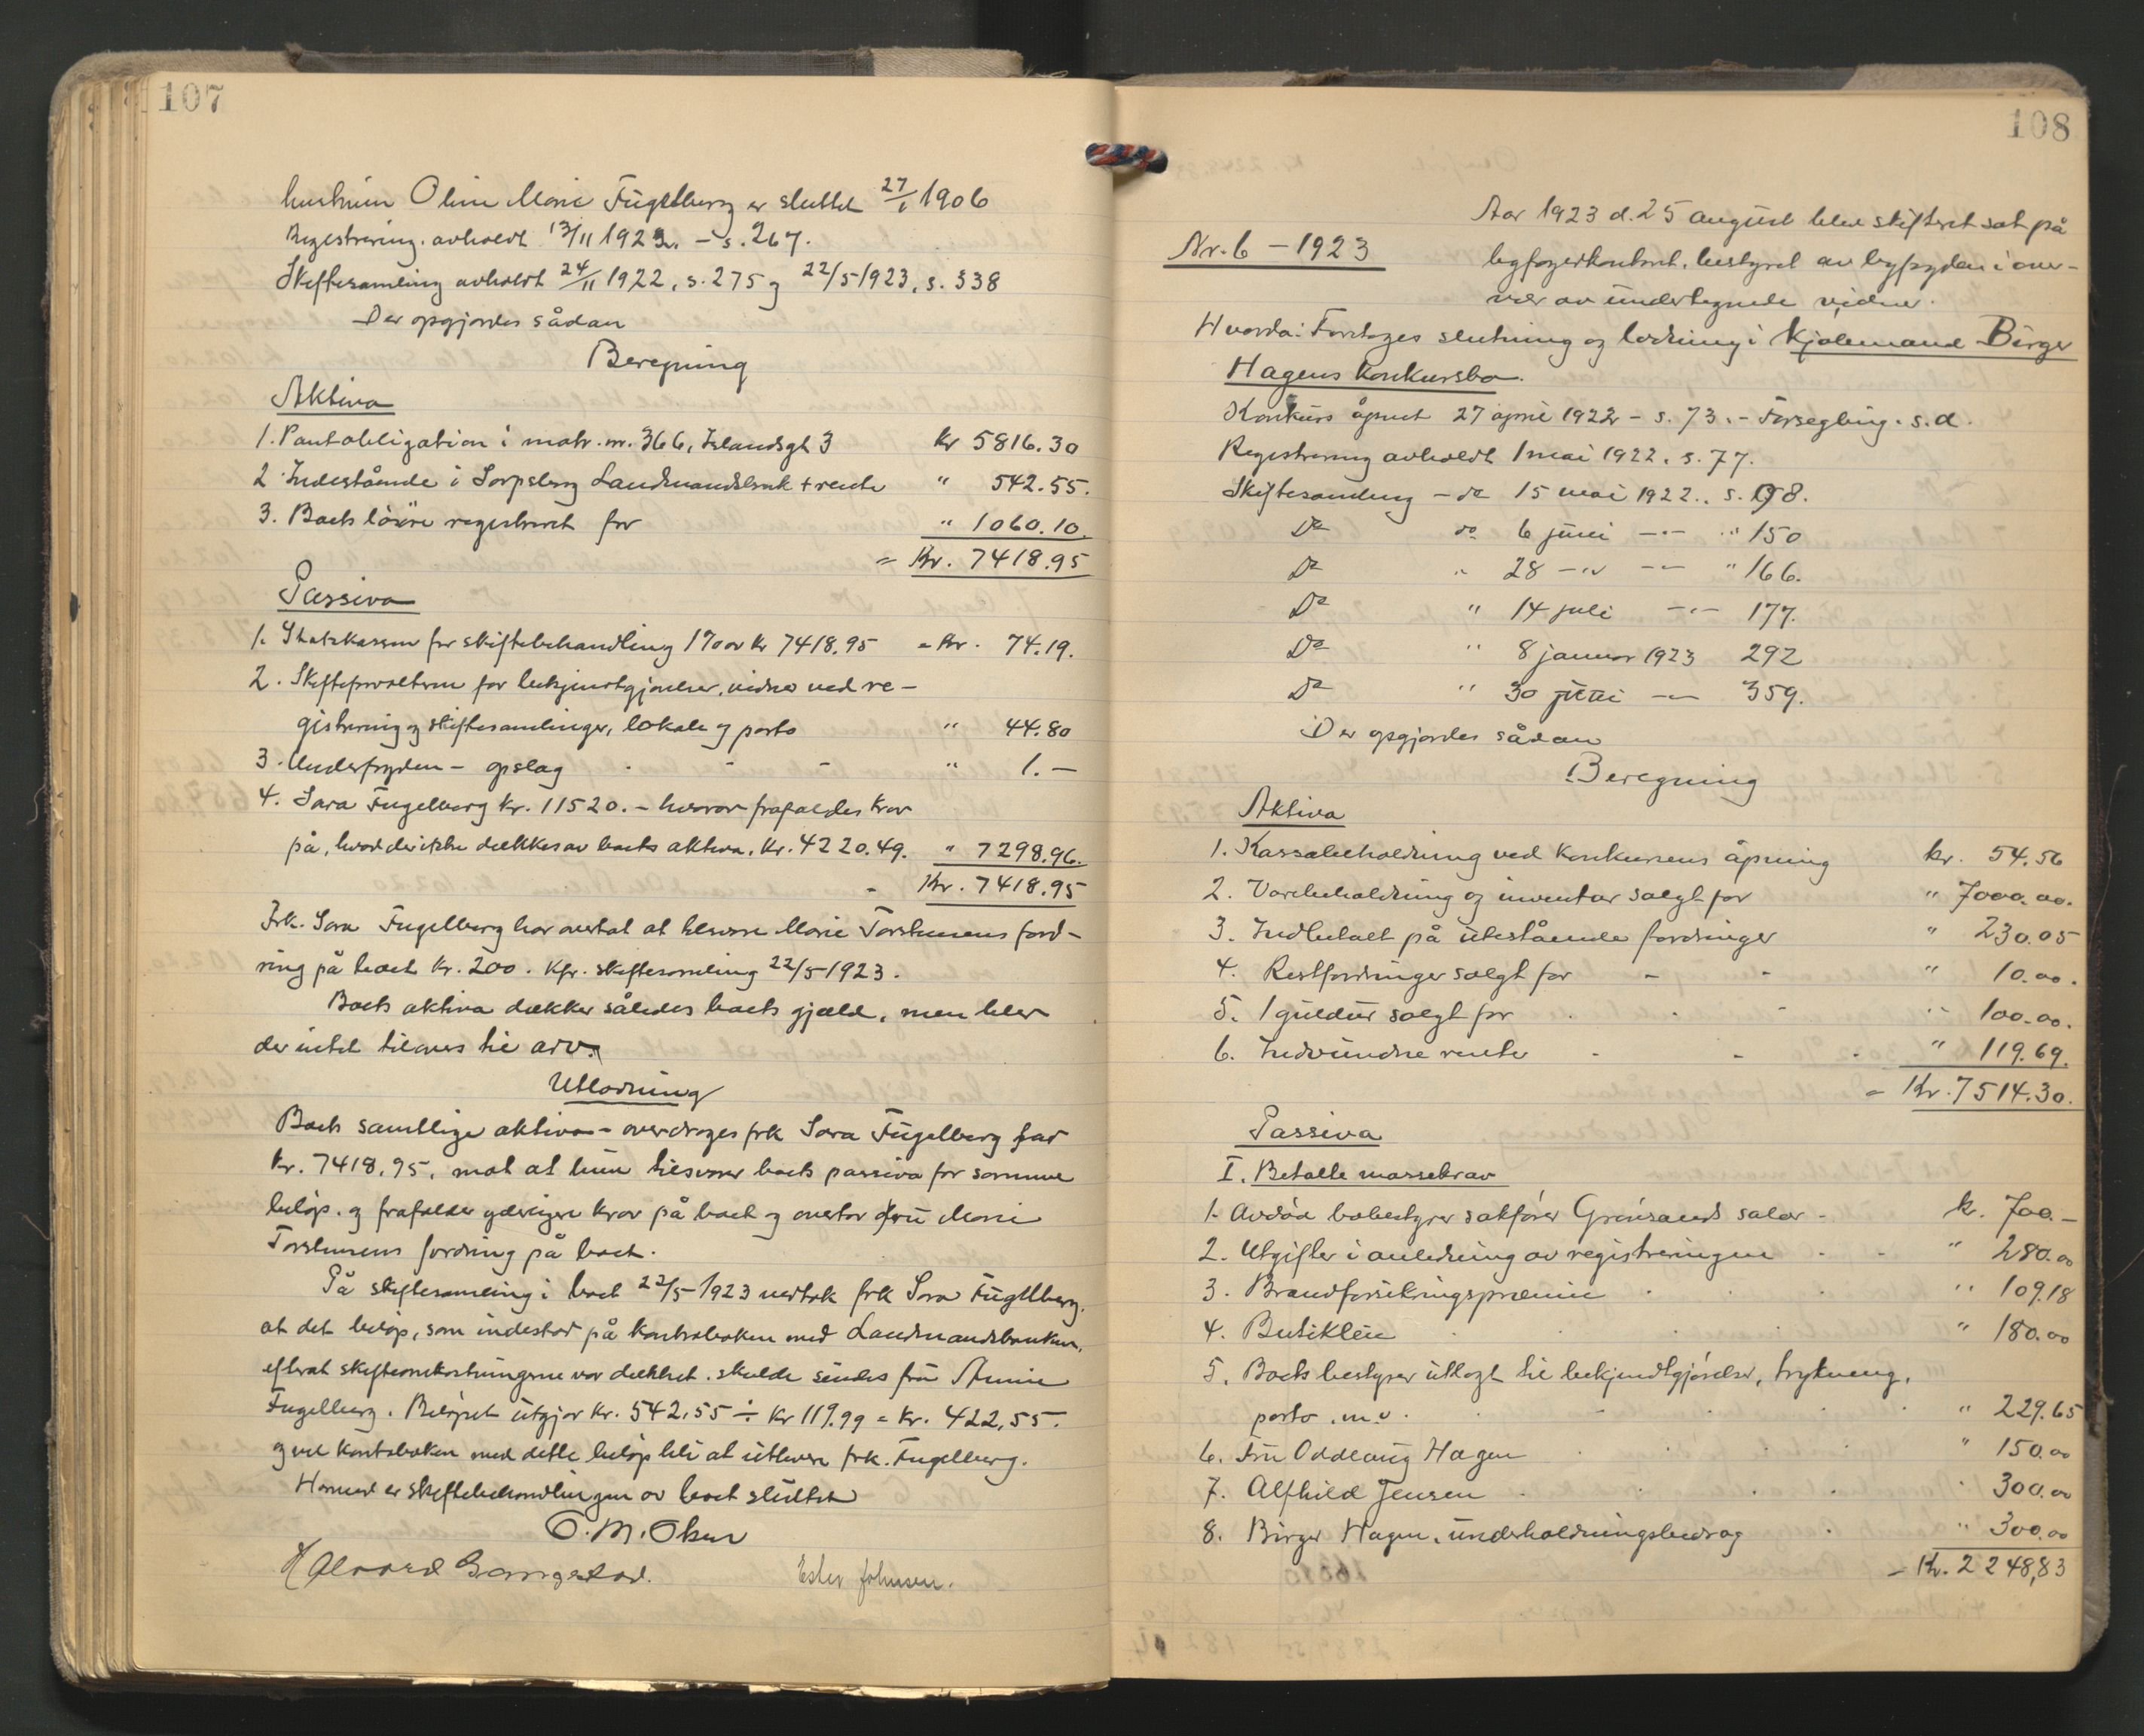 107
hustruen Oline Marie Fugelberg er sluttet 27/1 1906
Registrering avholdt 13/11 1922. - s. 267.
Skiftesamling avholdt 24/11 1922, s. 275 og 22/5 1923, s. 338
Der opgjordes sådan
Beregning
Aktiva
1. Pantobligation i matr. nr. 366, Islandsgt 3 kr 5816.30
2. Indestående i Sarpsborg Landmandsbank + rente " 542.55.
3. Boets løsøre registreret for " 1060.10.
= Kr. 7418.95
Passiva
1. Statskassen for skiftebehandling 1% av kr 7418.95 = kr. 74.19.
2. Skifteforvalteren for bekjentgjørelser, vidner ved re-
gistrering og skiftesamlinger, lokale og porto " 44.80
3. Underfogden - opslag - - - " 1.-
4. Sara Fugelberg kr. 11520. - hvorav frafaldes krav
på, hvad der ikke dækkes av boets aktiva, kr. 4220.49. " 7298.96.
- Kr. 7418.95
Frk. Sara Fugelberg har overtat at tilsvare Marie Torstensens ford-
ring på boet kr. 200. Kfr. skiftesamling 22/5 1923.
Boets aktiva dækker således boets gjæld, men blev
der intet tilovers til arv.
Utlodning
Boets samtlige aktiva - overdrages frk Sara Fugelberg for
kr. 7418.95, mot at hun tilsvarer boets passiva for samme
beløp. og frafalder yderligere krav på boet og overtar fru Marie
Torstensens fordring på boet.
På skiftesamling i boet 22/5 1923 vedtok frk Sara Fugelberg.
at det beløp, som indestod på kontraboken med Landmandsbanken,
efterat skifteomkostningerne var dækket. skulde sendes fru Annie
Fugelberg. Beløpet utgjør kr. 542,55 ÷ kr 119.99 = kr. 422,55.
og vil kontraboken med dette beløp bli at utlevere frk. Fugelberg.
Hermed er skiftebehandlingen av boet sluttet
O. M. Olsen
Halvard Gangestad. Ester Johnsen.
108
Aar 1923 d. 25 august blev skifteret sat på
Nr. 6 - 1923
byfogedkontoret, bestyret av byfogden i over-
vær av undertegnede vidner.
Hvorda: Foretages slutning og lodning i Kjøbmand Birger
Hagens konkursbo.
Konkurs åpnet 27 april 1922 - s. 73. - Forsegling. s. d.
Registrering avholdt 1 mai 1922, s. 77.
Skiftesamling - do 15 mai 1922., s. 98.
Do do 6 juni -"- " 150
Do " 28 -"- -"- " 166.
Do " 14 juli -"- 177.
Do " 8 januar 1923 292
Do " 30 juni -"- 359.
Der opgjordes sådan
Beregning
Aktiva
1. Kassabeholdning ved konkursens åpning kr. 54.56
2. Varebeholdning og inventar solgt for " 7000.00.
3. Indbetalt på utestående fordringer " 230.05
4. Restfordringer solgt for - - " 10.00.
5. 1 guldur solgt for - " 100.00.
6. Indvundne renter - - - " 119.69.
= Kr. 7514.30.
Passiva
I. Betalte massekrav
1. Avdød bobestyrer sakfører Grønsands salær - kr. 700.-
2. Utgifter i anledning av registreringen - - " 280.00
3. Brandforsikringspræmie " 109.18
4. Butikleie " 180.00
5. Boets bestyrer utlagt til bekjendtgjørelser, trykning,
porto. m. v. " 229.65
6. Fru Oddlaug Hagen " 150.00
7. Alfhild Jensen " 300.00
8. Birger Hagen, underholdningsbidrag " 300.00
= Kr. 2248,83